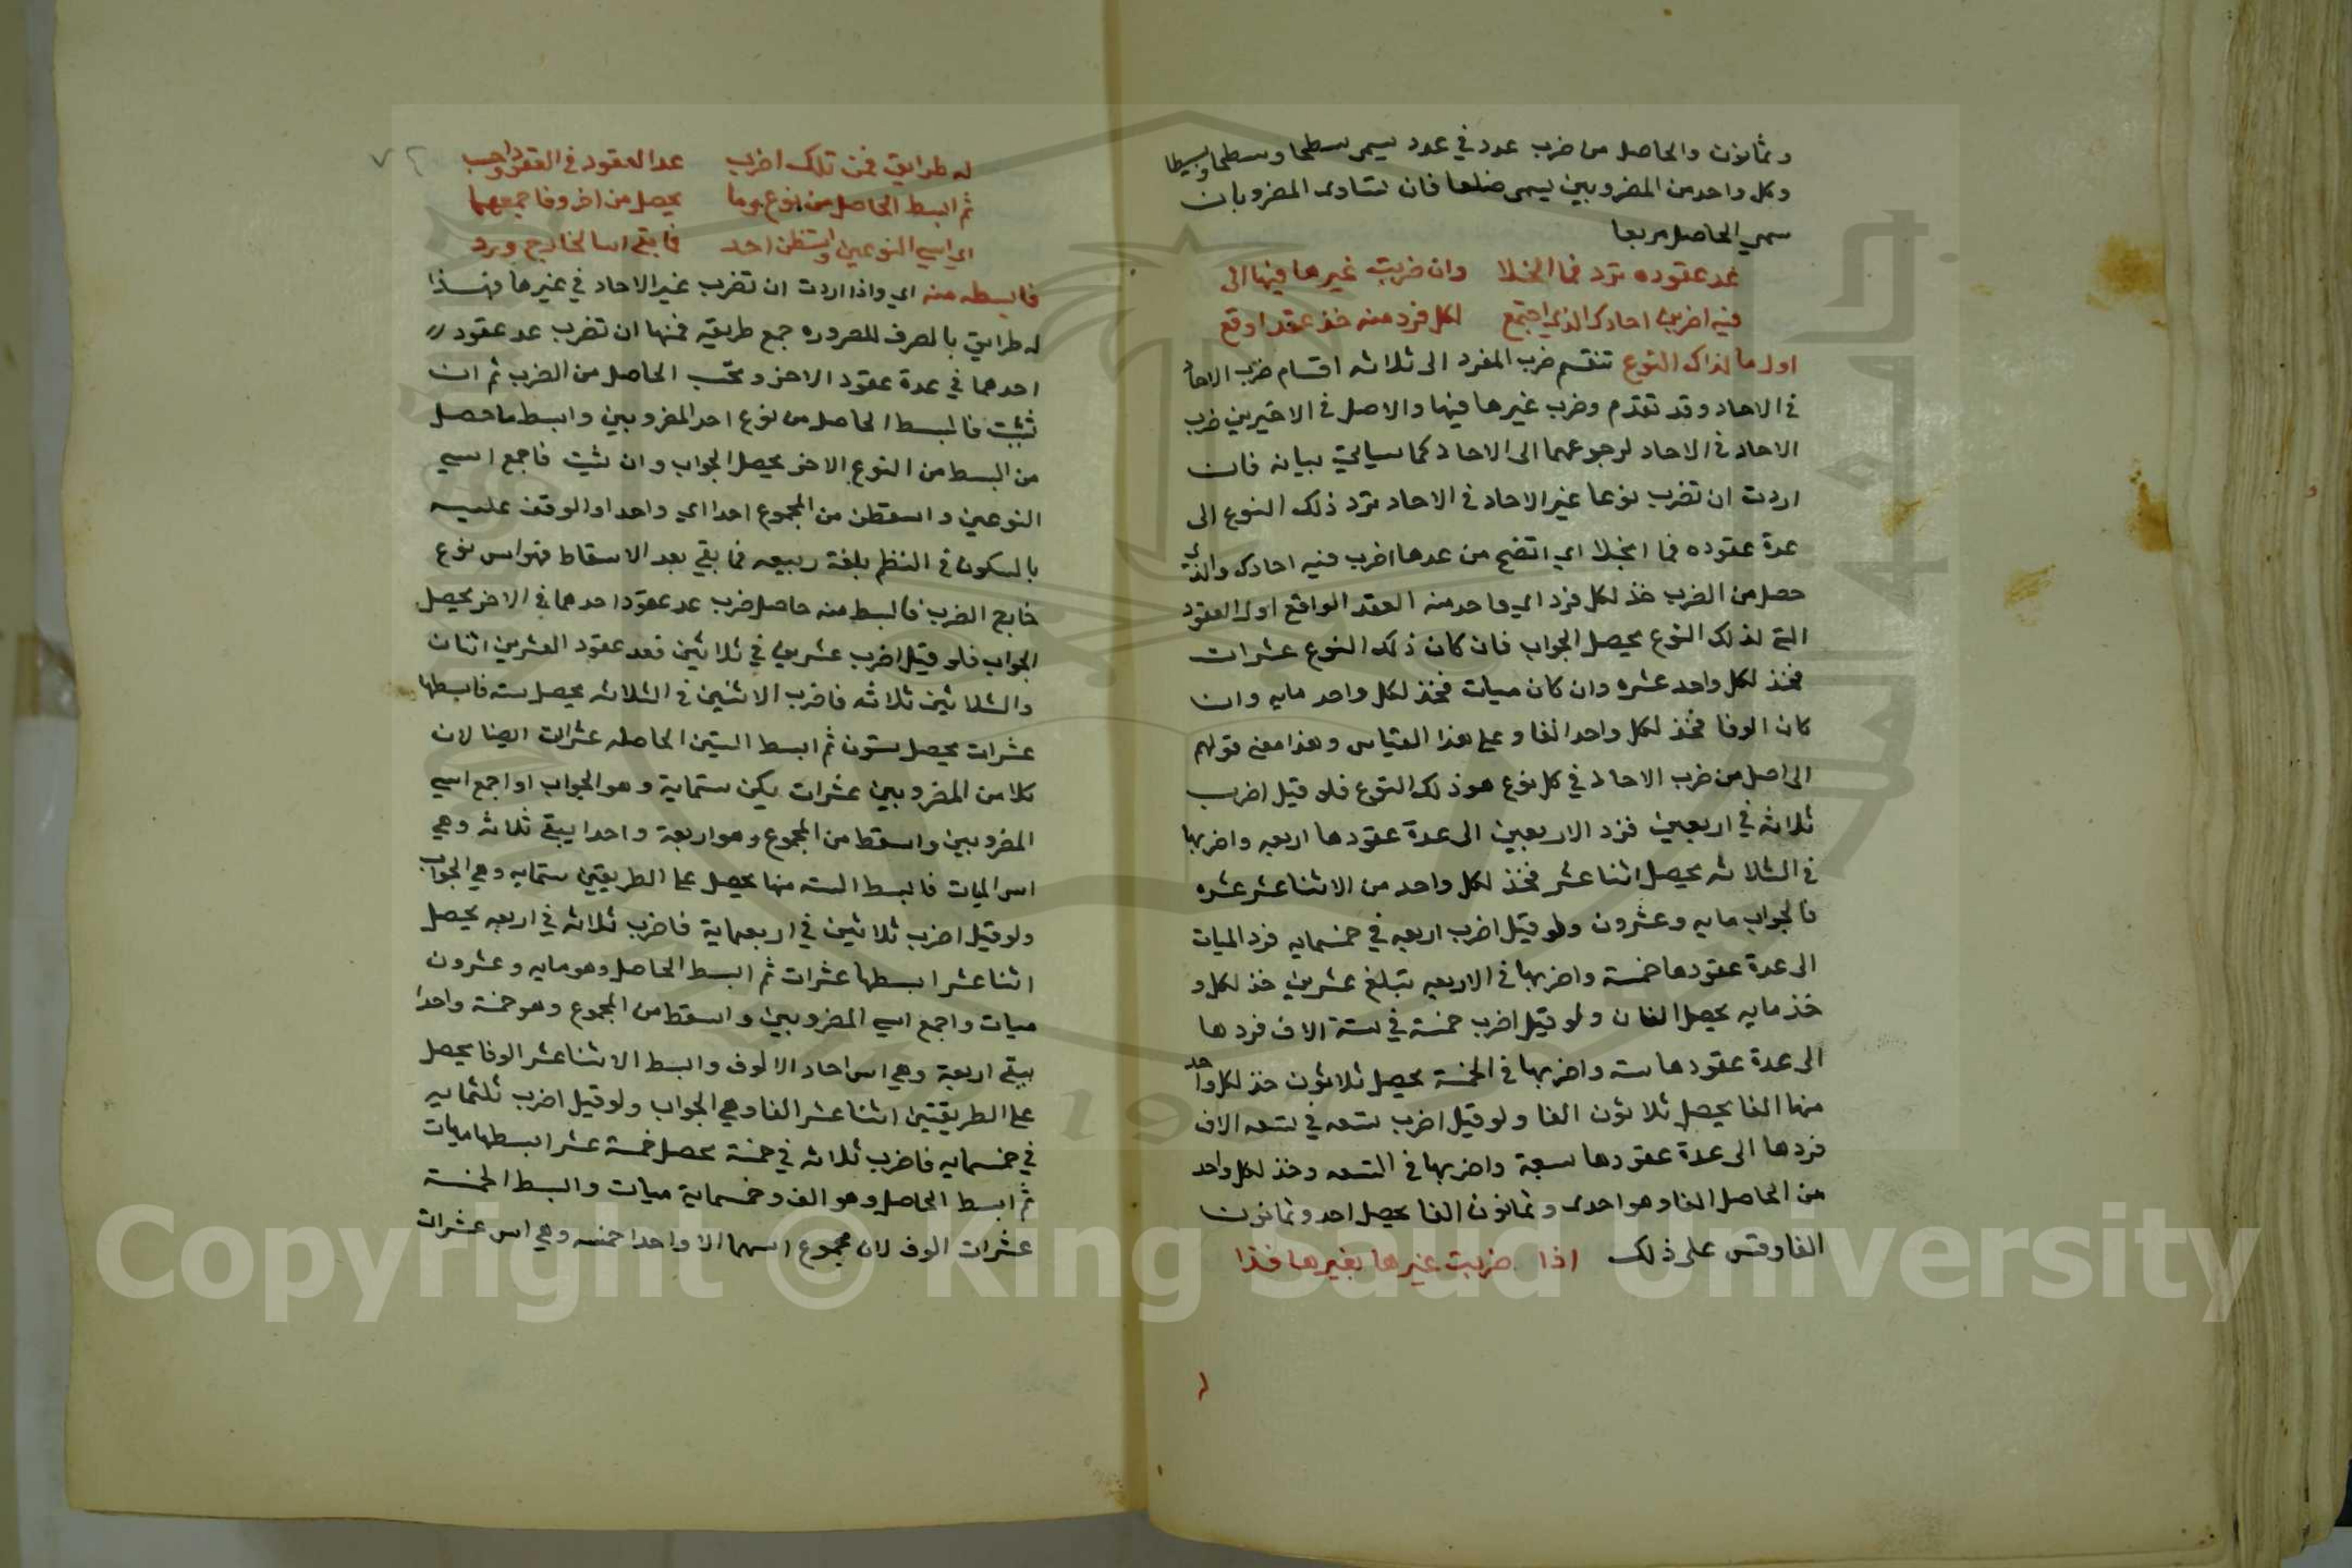 وثمانون والحاصل من ضرب عدد في عدد يسمى سطحا ومسطحا وبسيطا
وكل واحد من المضروبين يسمى ضلعا فان تساوى المضروبان
سمي الحاصل مربعا
وان ضربت غيرها فيها الى عد عقوده ترد فما انجلا
فيه اضربن احادك الذي اجتمع لكل فرد منه خذ عقد اوقع
اول ما لذاك النوع تنقسم ضرب المفرد الى ثلاثه اقسام ضرب الاحاد
في الاحاد وقد تقدم وضرب غيرها فيها والاصل في الاخيرين ضرب
الاحاد في الاحاد لرجوعهما الى الاحاد كما سياتي بيانه فان
اردت ان تضرب نوعا غير الاحاد في الاحاد ترد ذلك النوع الى
عدة عقوده فما انجلا اي اتضح من عدها اضرب فيه احادك والذي
حصل من الضرب خذ لكل فرد اي واحد منه العقد الواقع اول العقود
التي لذلك النوع يحصل الجواب فان كان ذلك النوع عشرات
فخذ لكل واحد عشره وان كان ميات فخذ لكل واحد مايه وان
كان الوفا فخذ لكل واحد الفا وعلى هذا القياس وهذا معنى قولهم
الحاصل من ضرب الاحاد في كل نوع هو ذلك النوع فلو قيل اضرب
ثلاثه في اربعين فرد الاربعين الى عدة عقودها اربعه واضربها
في الثلاثه يحصل اثنا عشر فخذ لكل واحد من الاثنا عشر عشره
فالجواب مايه وعشرون ولو قيل اضرب اربعه في خمسمايه فرد الميات
الى عدة عقودها خمسة واضربها في الاربعه تبلغ عشرين خذ لكل و
خذ مايه يحصل الفان ولو قيل اضرب خمسة في ستة الاف فردها
الى عدة عقودها سته واضربها في الخمسة يحصل ثلاثون خذ لكل واحد
منها الفا يحصل ثلاثون الفا ولو قيل اضرب تسعه في تسعه الاف
فردها الى عدة عقودها سبعة واضربها في التسعه وخذ لكل واحد
من الحاصل الفا وهو احدى وثمانون الفا يحصل احد وثمانون
الفا وقس على ذلك اذا ضربت غيرها بغيرها فذا
له طرايق فمن تلك اضرب عد العقود في العقود واحسب
ثم ابسط الحاصل من نوع وما يحصل من اخر وفاجمعهما
اي اسي النوعين واسقطن احد فما بقي اسا لخارج ورد
فابسطه منه اي واذا اردت ان تضرب غير الاحاد في غيرها فهذا
له طرايق بالصرف للضروره جمع طريقه فمنها ان تضرب عد عقود
احدهما في عدة عقود الاخر وتحسب الحاصل من الضرب ثم ان
شئت فابسط الحاصل من نوع احد المضروبين وابسط ما حصل
من البسط من النوع الاخر يحصل الجواب وان شئت فاجمع اسي
النوعين واسقطن من المجموع احدا اي واحدا والوقف عليه
بالسكون في النظم بلغة ربيعه فما بقي بعد الاسقاط فهو اس نوع
خارج الضرب فابسط منه حاصل ضرب عد عقود احدهما في الاخر يحصل
الجواب فلو قيل اضرب عشرين في ثلاثين فعد عقود العشرين اثنان
والثلاثين ثلاثه فاضرب الاثنين في الثلاثه يحصل سته فابسطها
عشرات يحصل ستون ثم ابسط الستين الحاصله عشرات ايضا لان
كلا من المضروبين عشرات يكن ستماية وهو الجواب او اجمع اسي
المضروبين واسقط من المجموع وهو اربعة واحدا يبقى ثلاثه وهي
اس الميات فابسط السته منها يحصل على الطريقين ستمايه وهي الجواب
ولو قيل اضرب ثلاثين في اربعماية فاضرب ثلاثه في اربعه يحصل
اثنا عشر ابسطها عشرات ثم ابسط الحاصل وهو مايه وعشرون
ميات واجمع اسي المضروبين واسقط من المجموع وهو خمسة واحدا
يبقى اربعة وهي اس احاد الالوف وابسط الاثنا عشر الوفا يحصل
على الطريقتين اثنا عشر الفا وهي الجواب ولو قيل اضرب ثلثمايه
في خمسمايه فاضرب ثلاثه في خمسة يحصل خمسة عشر ابسطها ميات
ثم ابسط الحاصل وهو الف وخمسماية ميات وابسط الخمسة
عشرات الوف لان مجموع اسهما الا واحدا خمسه وهي اس عشرات
Copyright © King Saud University